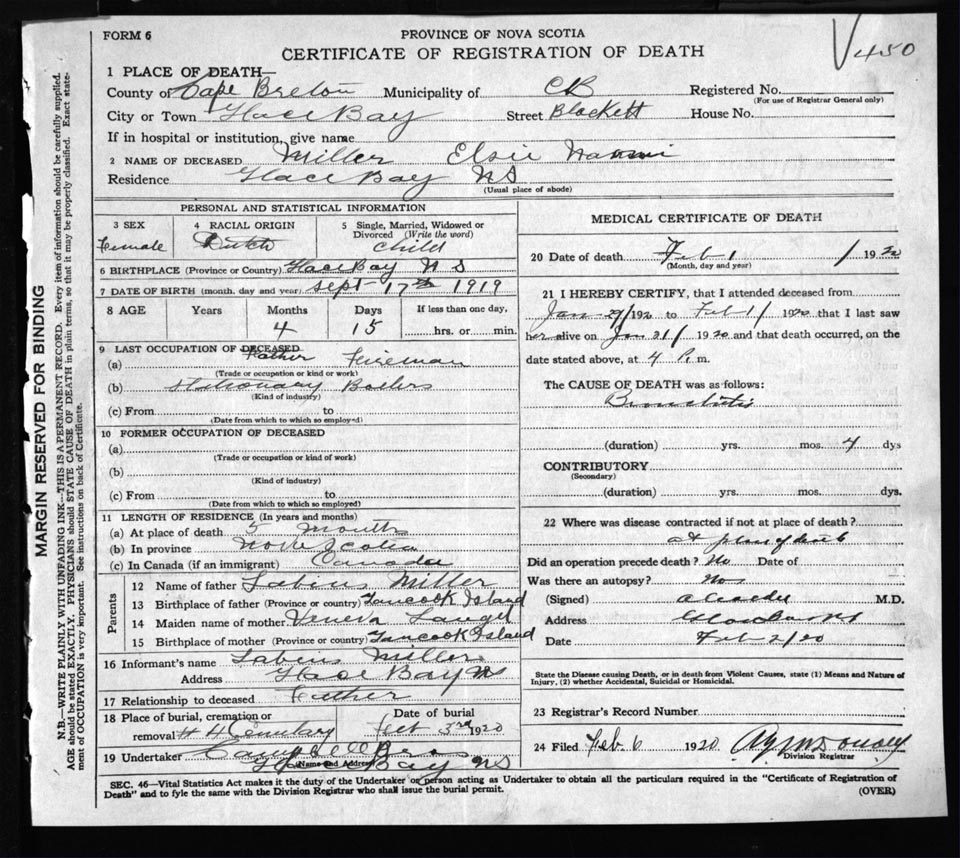 FORM 6
PROVINCE OF NOVA SCOTIA
450
CERTIFICATE OF REGISTRATION OF DEATH
1 PLACE OF DEATH—
County of Cape Breton Municipality of CB Registered No.
(For use of Registrar General only)
City or Town Glace Bay Street Blackett House No.
If in hospital or institution, give name
2 NAME OF DECEASED Miller Elsie Naomi
Residence Glace Bay NS
(Usual place of abode)
PERSONAL AND STATISTICAL INFORMATION
3 SEX 4 RACIAL ORIGIN 5 Single, Married, Widowed or
Divorced (Write the word)
Female Dutch Child
6 BIRTHPLACE (Province or Country) Glace Bay N S
7 DATE OF BIRTH (month, day and year) Sept 17th 1919
8 AGE Years Months Days If less than one day,
4 15 hrs. or min.
9 LAST OCCUPATION OF DECEASED
(a) Father Fireman
(Trade or occupation or kind of work)
(b) Stationary Boilers
(Kind of industry)
(c) From to
(Date from which to which so employed)
10 FORMER OCCUPATION OF DECEASED
(a)
(Trade or occupation or kind of work)
(b)
(Kind of industry)
(c) From to
(Date from which to which so employed)
11 LENGTH OF RESIDENCE (In years and months)
(a) At place of death 5 Months
(b) In province Nova Scotia
(c) In Canada (if an immigrant) Canada
Parents
12 Name of father Sabius Miller
13 Birthplace of father (Province or country) Tancook Island
14 Maiden name of mother Veneva
15 Birthplace of mother (Province or country) Tancook Island
16 Informant's name Sabius Miller
Address Glace Bay NS
17 Relationship to deceased Father
18 Place of burial, cremation or Date of burial
removal Cemetary Feb 3rd 1920
19 Undertaker Campbell Bro
(Name and Address) Glace Bay NS
MEDICAL CERTIFICATE OF DEATH
20 Date of death Feb 1 / 1920
(Month, day and year)
21 I HEREBY CERTIFY, that I attended deceased from
Jan 29/1920 to Feb 1/ 1920 that I last saw
her alive on Jan 31/ 1920 and that death occurred, on the
date stated above, at 4 P. m.
The CAUSE OF DEATH was as follows:
Bronchitis
(duration) yrs. mos. 4 dys
CONTRIBUTORY
(Secondary)
(duration) yrs. mos. dys.
22 Where was disease contracted if not at place of death?
at place of death
Did an operation precede death? No Date of
Was there an autopsy? No
(Signed) M.D.
Address
Date Feb 2/20
State the Disease causing Death, or in death from Violent Causes, state (1) Means and Nature of
Injury, (2) whether Accidental, Suicidal or Homicidal.
23 Registrar's Record Number
24 Filed Feb. 6 1920
Division Registrar
SEC. 46—Vital Statistics Act makes it the duty of the Undertaker or person acting as Undertaker to obtain all the particulars required in the "Certificate of Registration of
Death" and to fyle the same with the Division Registrar who shall issue the burial permit. (OVER)
MARGIN RESERVED FOR BINDING
N.B.—WRITE PLAINLY WITH UNFADING INK—THIS IS A PERMANENT RECORD. Every item of information should be carefully supplied.
AGE should be stated EXACTLY. PHYSICIANS should STATE CAUSE OF DEATH in plain terms, so that it may be properly classified. Exact state-
ment of OCCUPATION is very important. See instructions on back of Certificate.